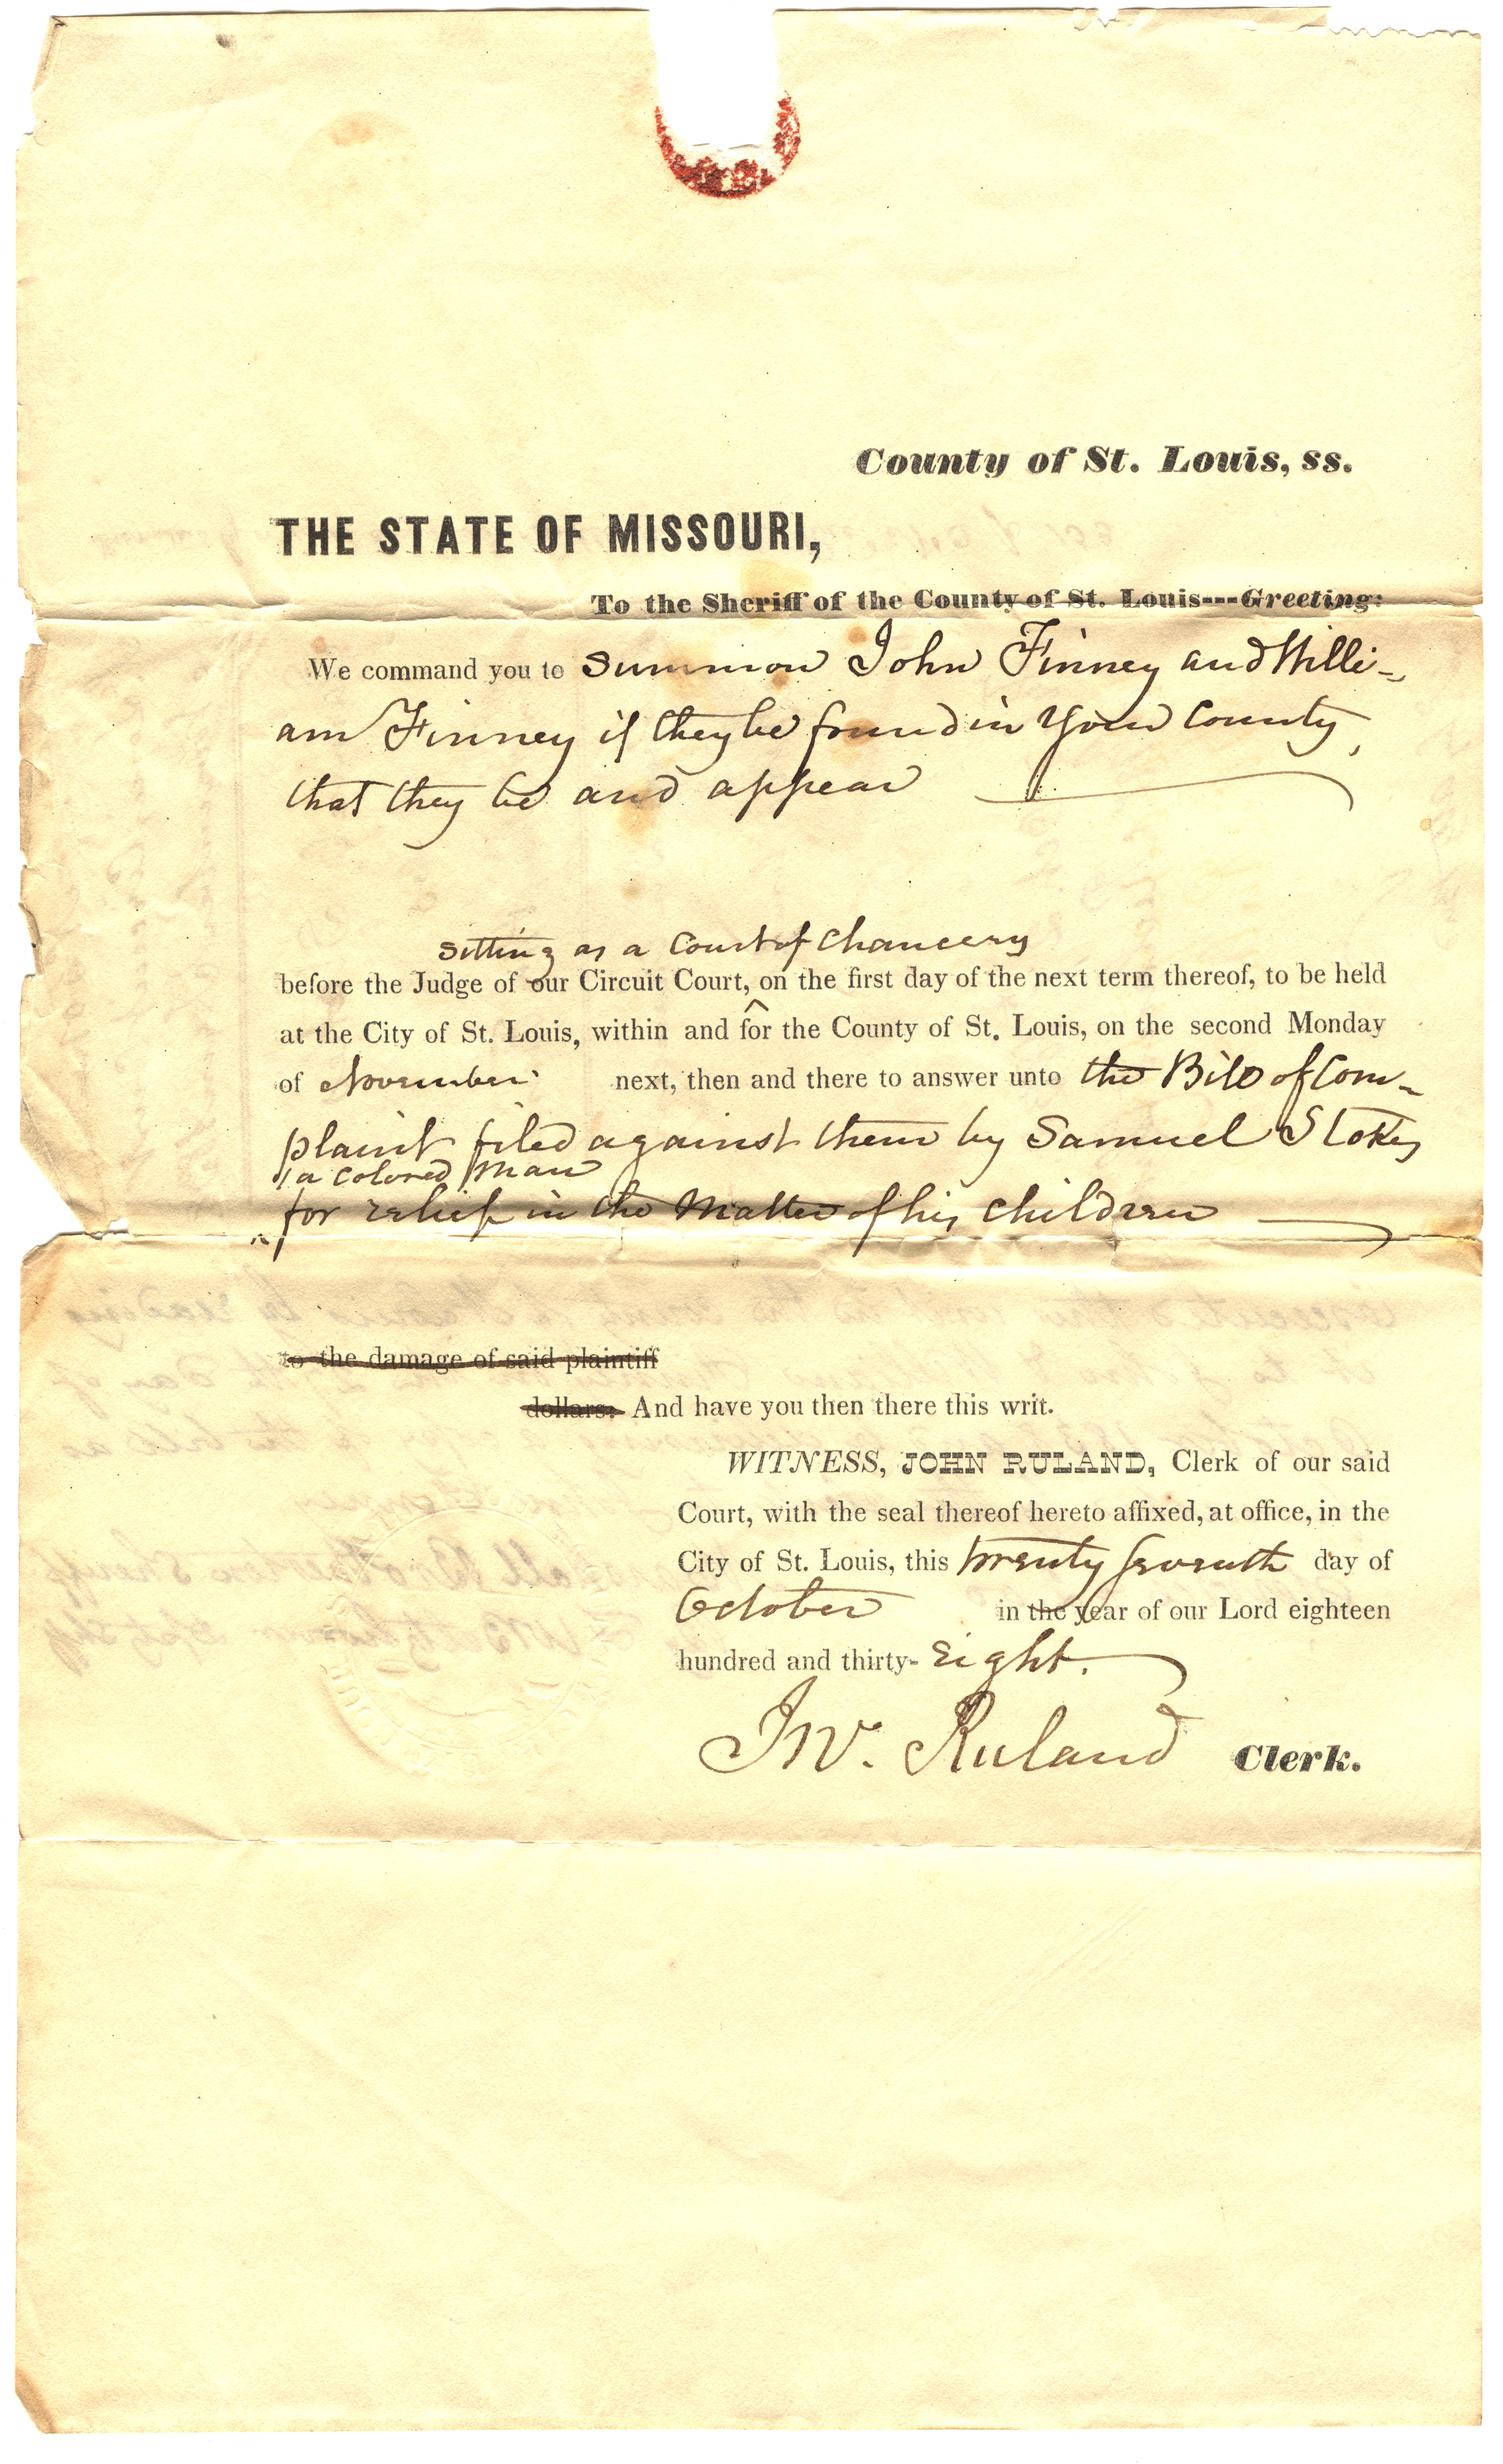 County of St. Louis, ss.
THE STATE OF MISSOURI,
To the Sheriff of the County of St. Louis---Greeting:
We command you to summon John Finney and Willi-
am Finney if they be found in your County,
that they be and appear
sitting as a Court of Chancery
before the Judge of our Circuit Court, ^ on the first day of the next term thereof, to be held
at the City of St. Louis, within and for the County of St. Louis, on the second Monday
of November next, then and there to answer unto the Bill of Com-
plaint filed against them by Samuel Stokes
a colored man
for relief in the Matter of his children
to the damage of said plaintiff
dollars: And have you then there this writ.
WITNESS, JOHN RULAND, Clerk of our said
Court, with the seal thereof hereto affixed, at office, in the
City of St. Louis, this twenty seventh day of
October in the year of our Lord eighteen
hundred and thirty-eight.
Jno. Ruland Clerk.